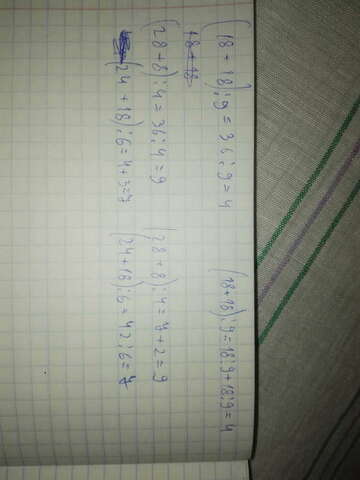 (18+18):9=36:9=4 (18+18):9=18:9+18:9=4
18+18
(28+8):4=36:4=9 (28+8):4=7+2=9
(24+18):6=4+3=7 (24+18):6=42:6=7